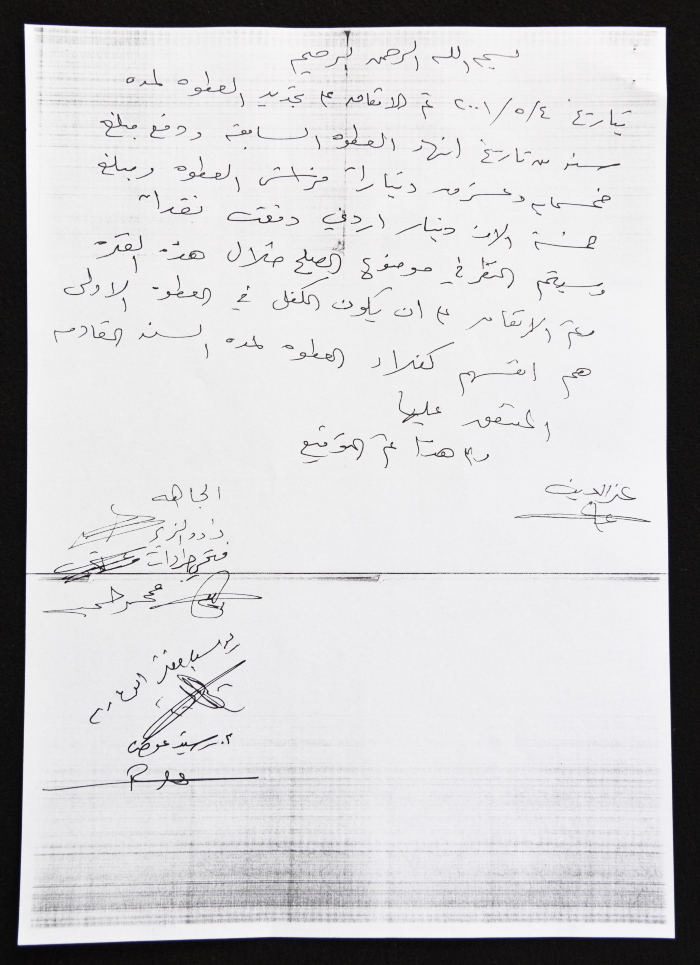 بسم الله الرحمن الرحيم
بتاريخ ٢٠٠١/٥/٤ تم الاتفاق على تجديد العطوه لمده
سنه من تاريخ انتهاء العطوه السابقه ودفع مبلغ
خمسمايه وعشرون دينارا فراش العطوه ومبلغ
خمسة الاف دينار اردني دفعت نقدا
وسيتم النظر في موضوع الصلح خلال هذه الفترة
وتم الاتفاق على ان يكون الكفل في العطوة الاولى
هم انفسهم كفلاء العطوه لمده السنه القادمه
المتفق عليها
وعلى هذا تم التوقيع
عز الدين
الجاهه
فتحي جرادات
رشيد عوض